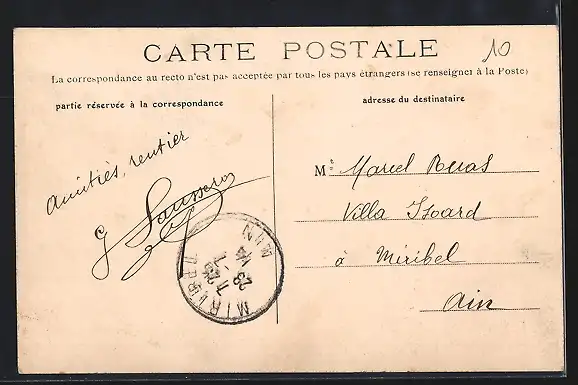 CARTE POSTALE
10
La correspondance au recto n'est pas acceptée par tous les pays étrangers (se renseigner à la Poste)
partie réservée à la correspondance
adresse du destinataire
Amitiés, rentier
G
M.t Marcel
Villa Izoard
à Miribel
Ain
MIRIBEL
AIN